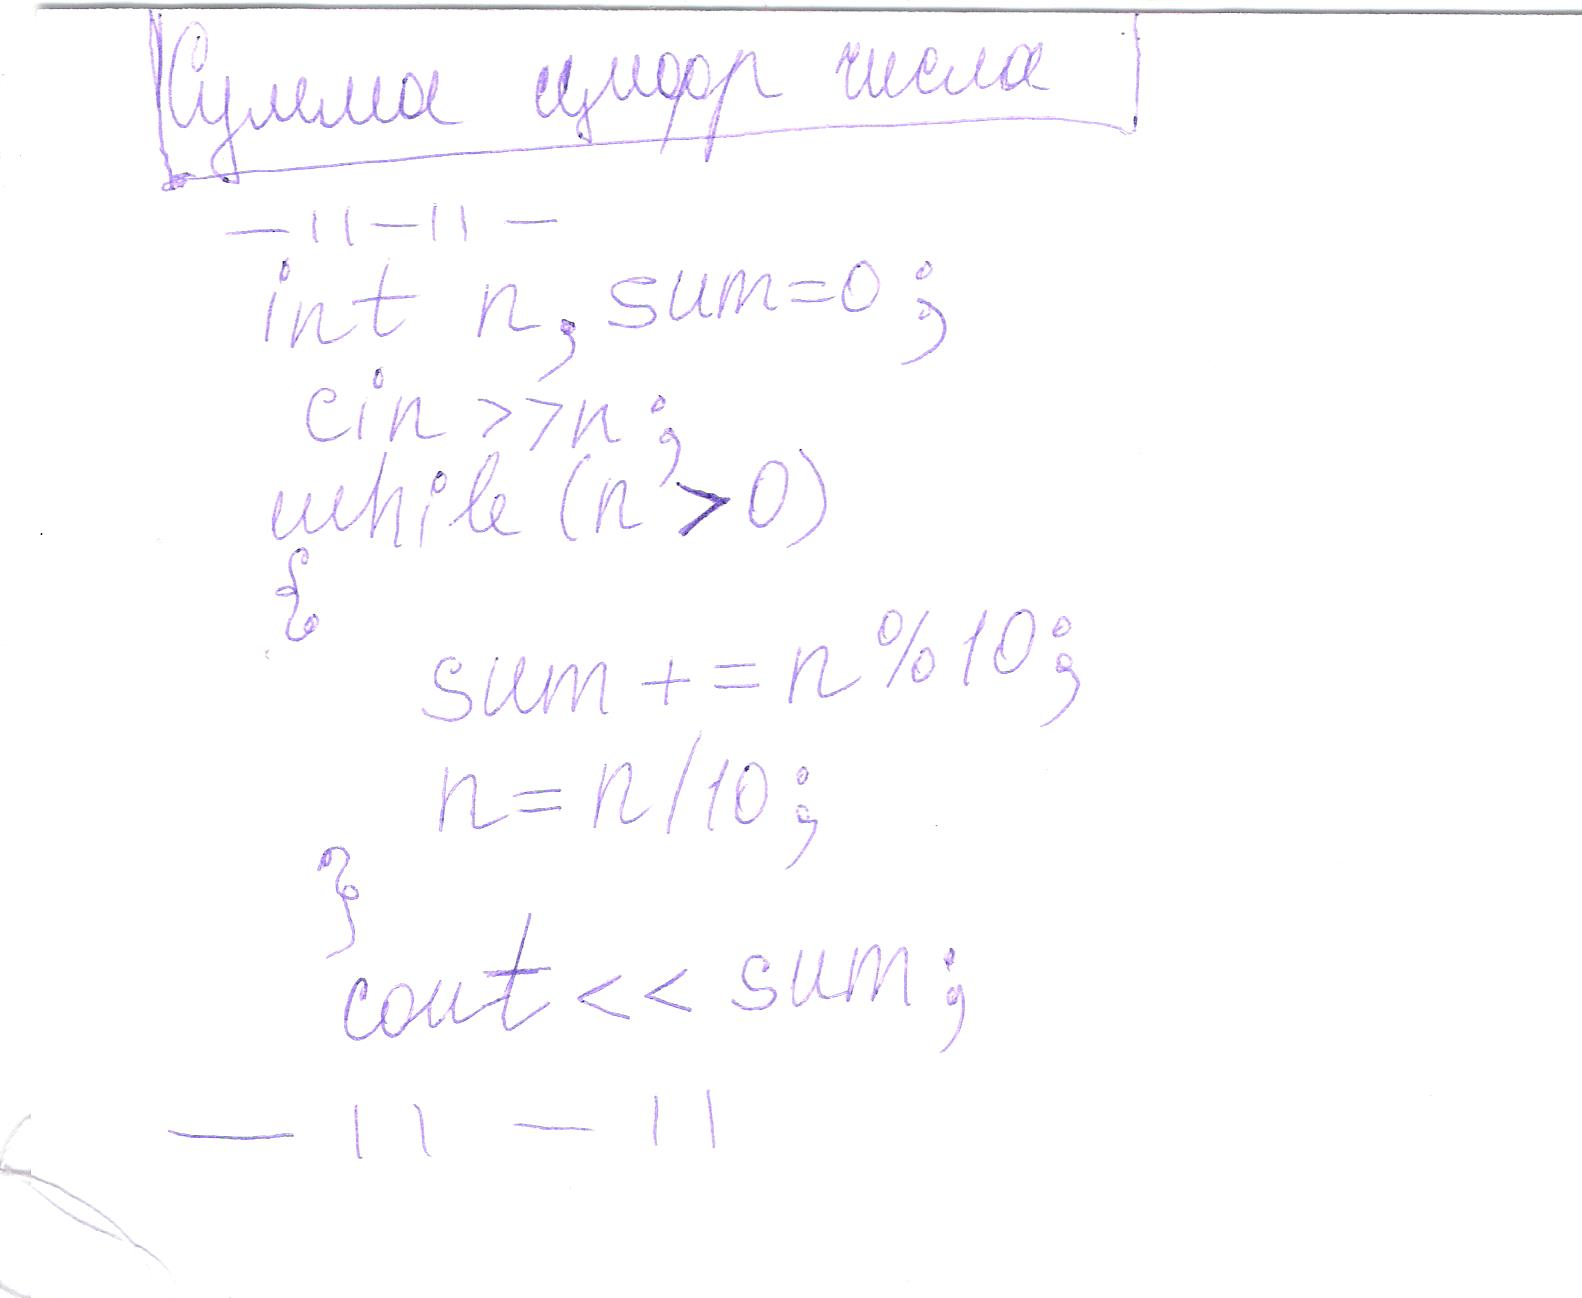 Сумма цифр числа
— 11 — 11 —
int n, sum=0;
cin >>n;
while (n >0)
{
sum += n%10;
n=n/10;
}
cout << sum;
— 11 — 11